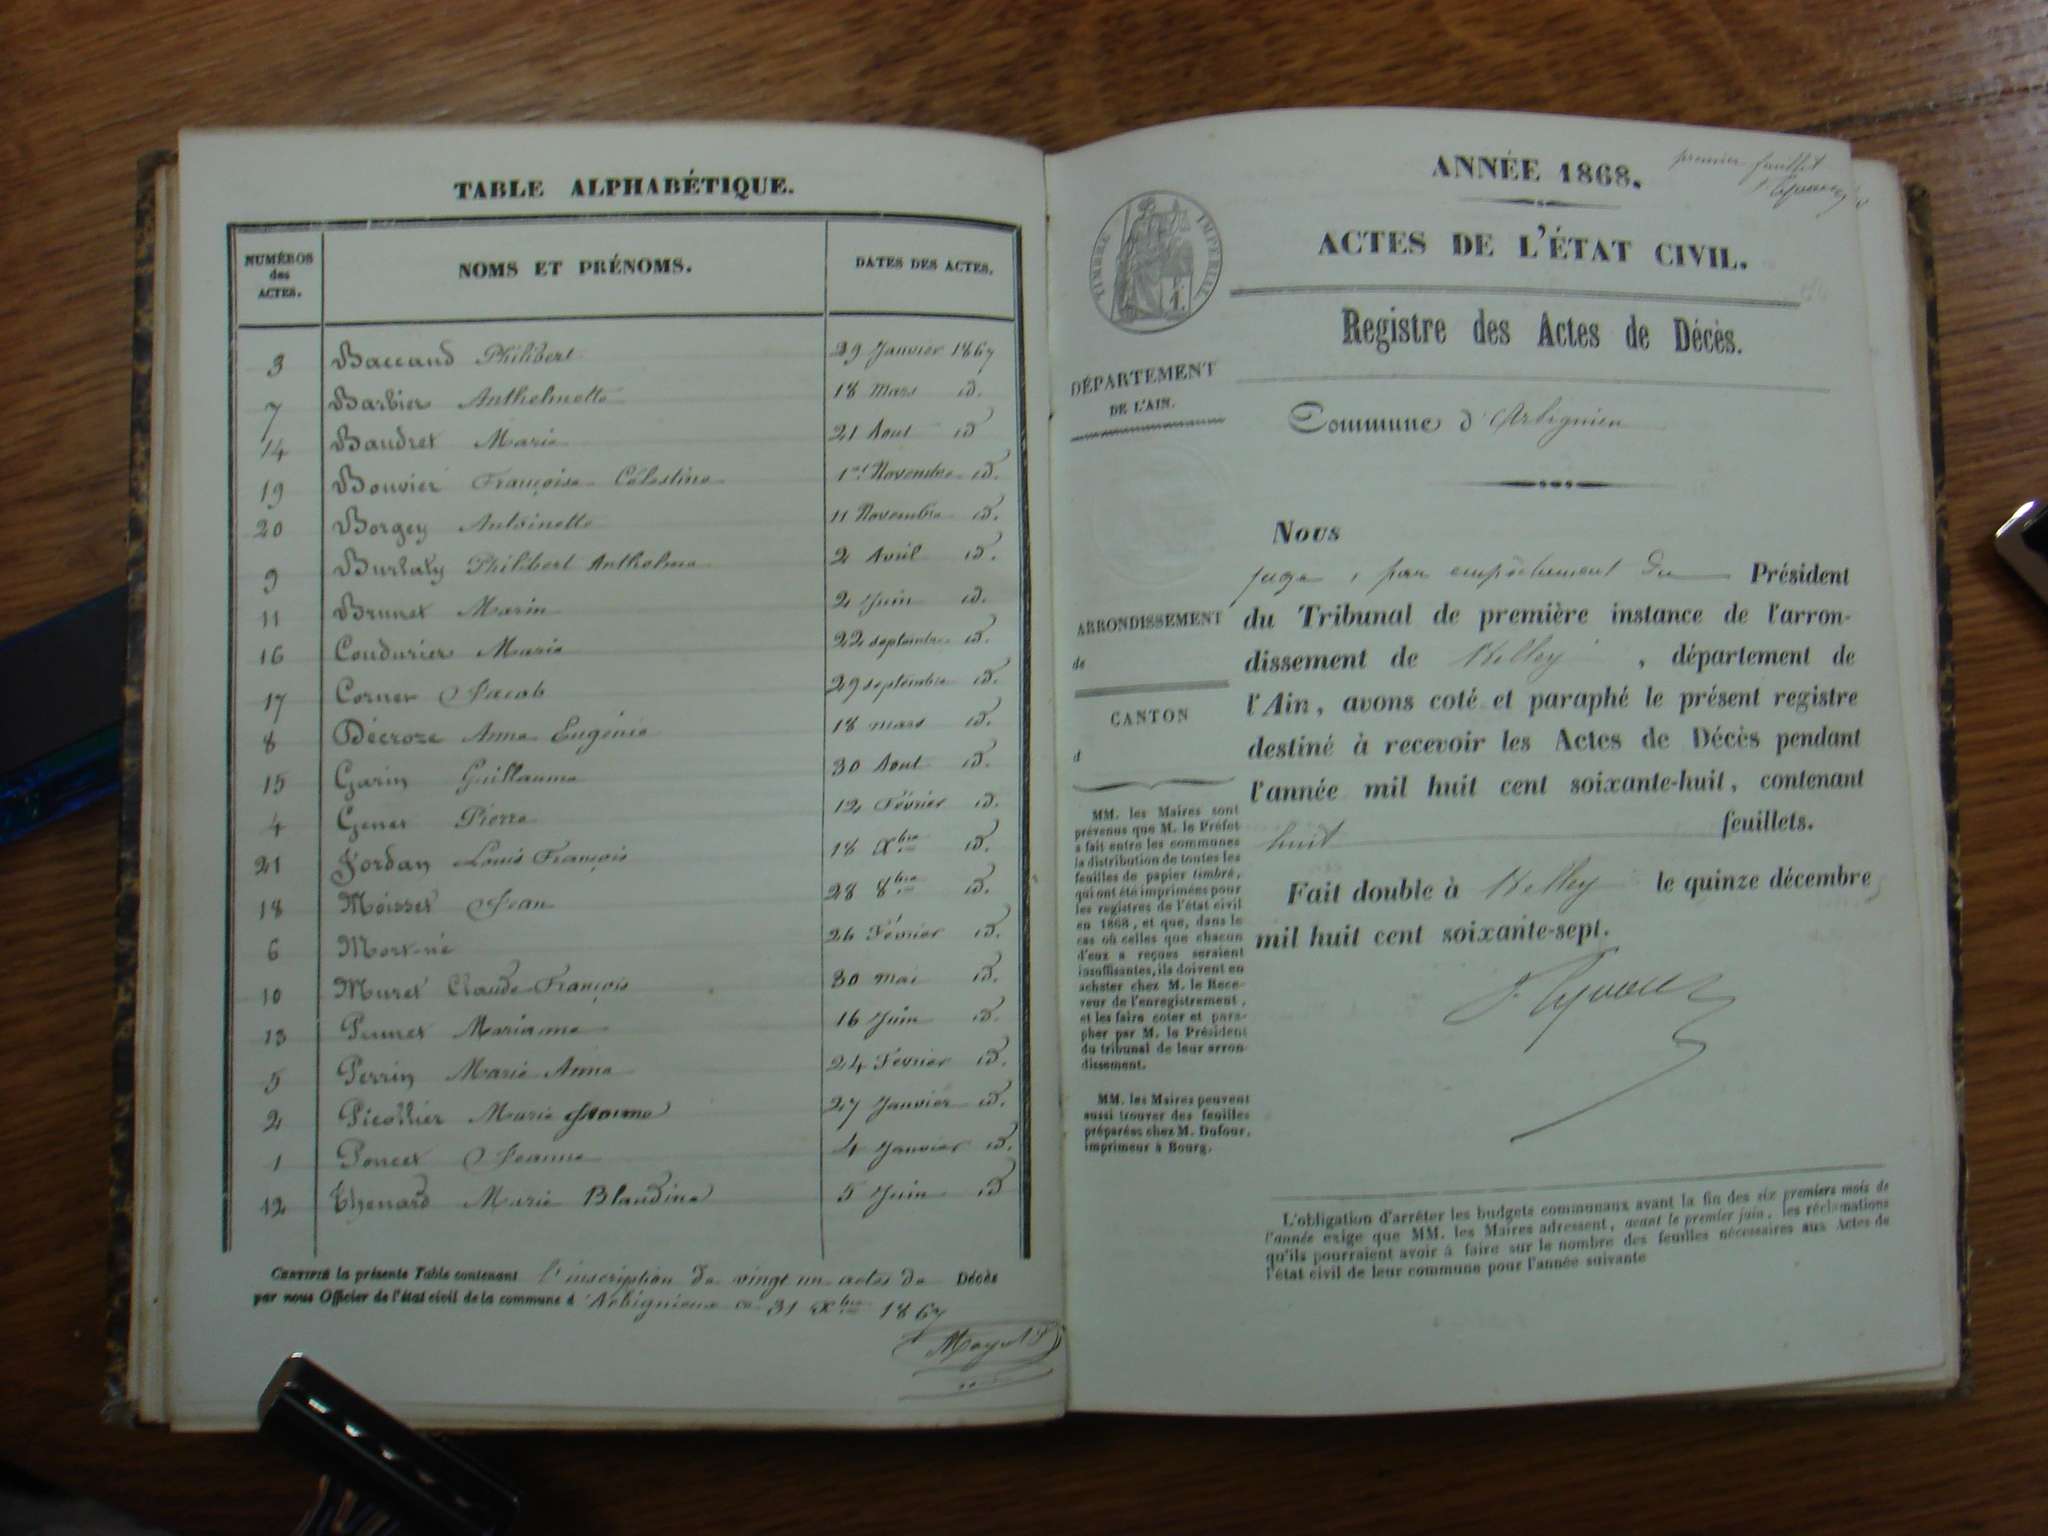 TABLE ALPHABÉTIQUE.
NUMÉROS des ACTES. NOMS ET PRÉNOMS. DATES DES ACTES.
3 Baccand Philibert 29 Janvier 1867
7 Barbier Anthelmette 18 mars id.
14 Baudret Marie 21 Aout id
19 Bouvier Françoise Célestine 1er Novembre id.
20 Borgey Antoinette 11 Novembre id.
9 Burlaty Philibert Anthelme 2 Avril id.
11 Brunet Marin 2 Juin id.
16 Coudurier Marie 22 septembre id.
17 Corner Jacob 29 septembre id.
8 Décroze Anne Eugénie 18 mars id.
15 Garin Guillaume 30 Aout id.
4 Genet Pierre 12 Février id.
21 Jordan Louis François 18 Xbre id.
18 Moisset Jean 28 8bre id.
6 Mort-né 26 Février id.
10 Muret Claude François 30 mai id.
13 Peunet Marianne 16 Juin id.
5 Perrin Marie Anne 24 Février id.
2 Picollier Marie 27 Janvier id.
1 Poncet Jeanne 4 Janvier id.
12 Thenard Marie Blandine 5 Juin id
CERTIFIÉ la présente Table contenant l'inscription de vingt un actes de Décès
par nous Officier de l'état civil de la commune d'Arbignieu ce 31 Xbre 1867
premier feuillet
ANNÉE 1868.
ACTES DE L'ÉTAT CIVIL.
TIMBRE IMPÉRIAL
1.
Registre des Actes de Décès.
DÉPARTEMENT
DE L'AIN.
Commune d'Arbignieu
ARRONDISSEMENT
de
CANTON
d
MM. les Maires sont
prévenus que M. le Préfet
a fait entre les communes
la distribution de toutes les
feuilles de papier timbré,
qui ont été imprimées pour
les registres de l'état civil
en 1868, et que, dans le
cas où celles que chacun
d'eux a reçues seraient
insuffisantes, ils doivent en
acheter chez M. le Rece-
veur de l'enregistrement,
et les faire coter et para-
pher par M. le Président
du tribunal de leur arron-
dissement.
MM. les Maires peuvent
aussi trouver des feuilles
préparées chez M. Dufour,
imprimeur à Bourg.
Nous
juge, par empêchement du Président
du Tribunal de première instance de l'arron-
dissement de Belley, département de
l'Ain, avons coté et paraphé le présent registre
destiné à recevoir les Actes de Décès pendant
l'année mil huit cent soixante-huit, contenant
huit feuillets.
Fait double à Belley le quinze décembre
mil huit cent soixante-sept.
L'obligation d'arrêter les budgets communaux avant la fin des six premiers mois de
l'année exige que MM. les Maires adressent, avant le premier juin, les réclamations
qu'ils pourraient avoir à faire sur le nombre des feuilles nécessaires aux Actes de
l'état civil de leur commune pour l'année suivante